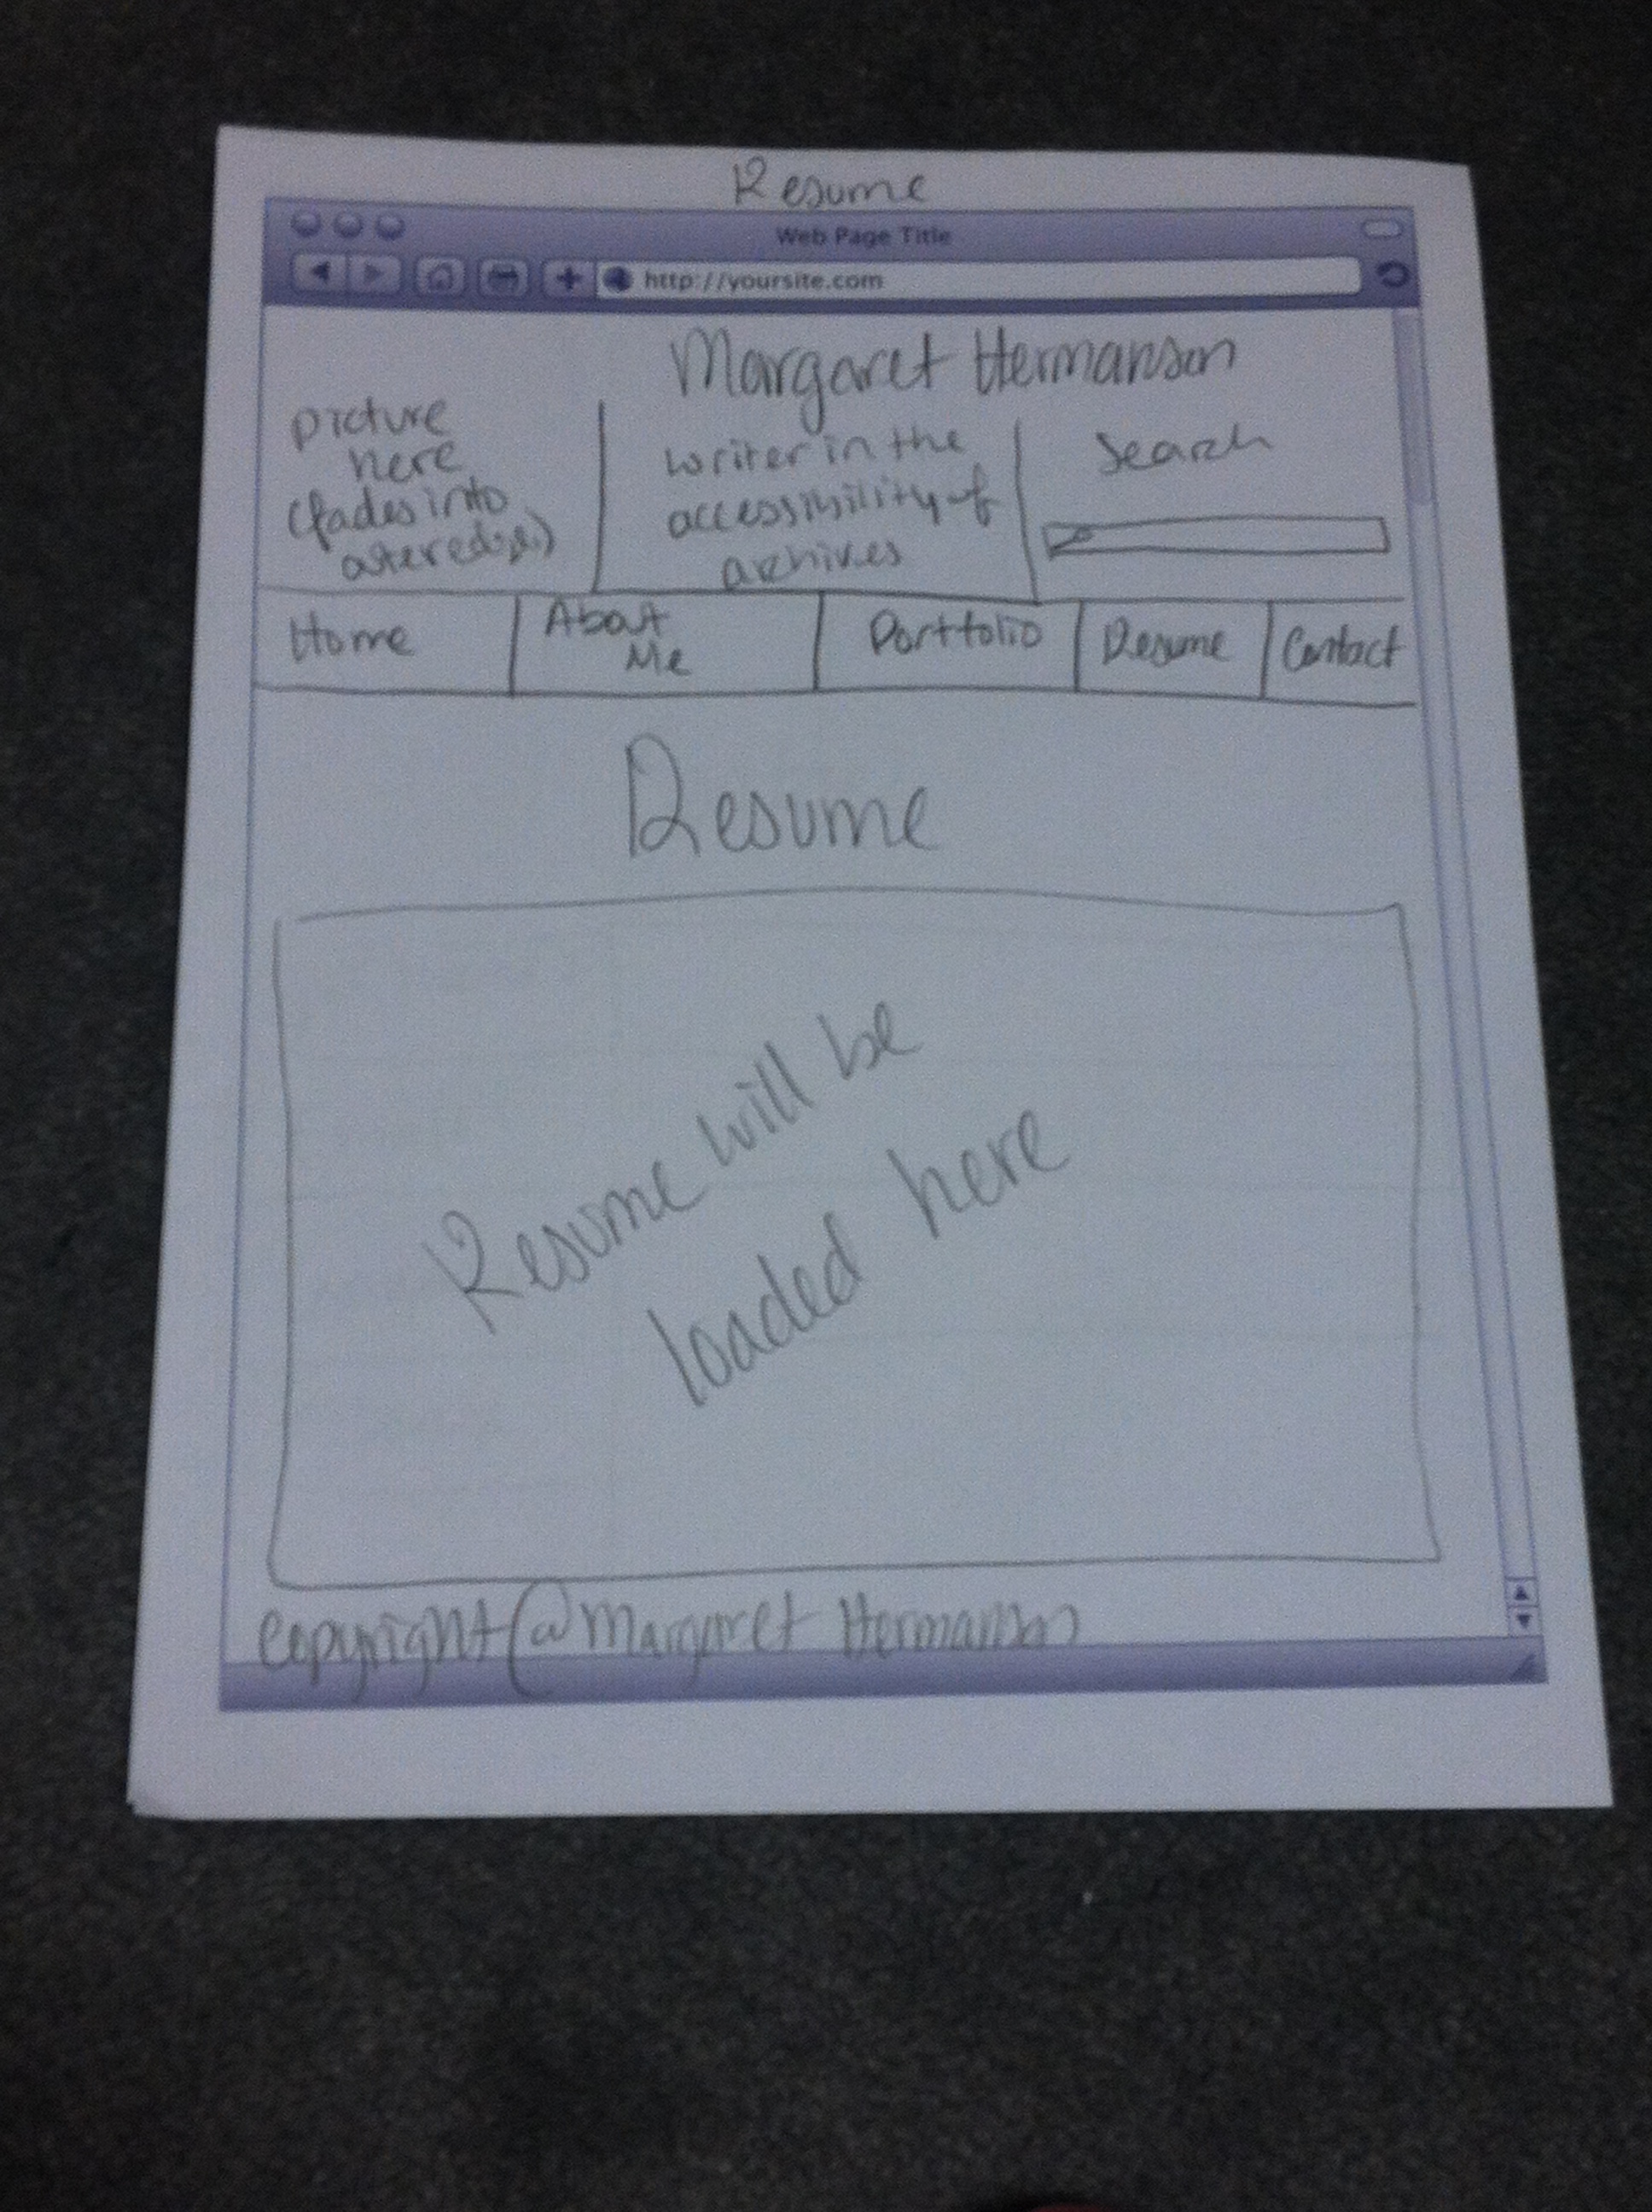 Resume
Web Page Title
http://yoursite.com
Margaret Hermanson
picture
here
(fades into
writer in the
accessibility of
archives
Search
Home
About
Me
Portfolio
Resume
Contact
Resume
Resume will be
loaded here
copyright @ Margaret Hermanson